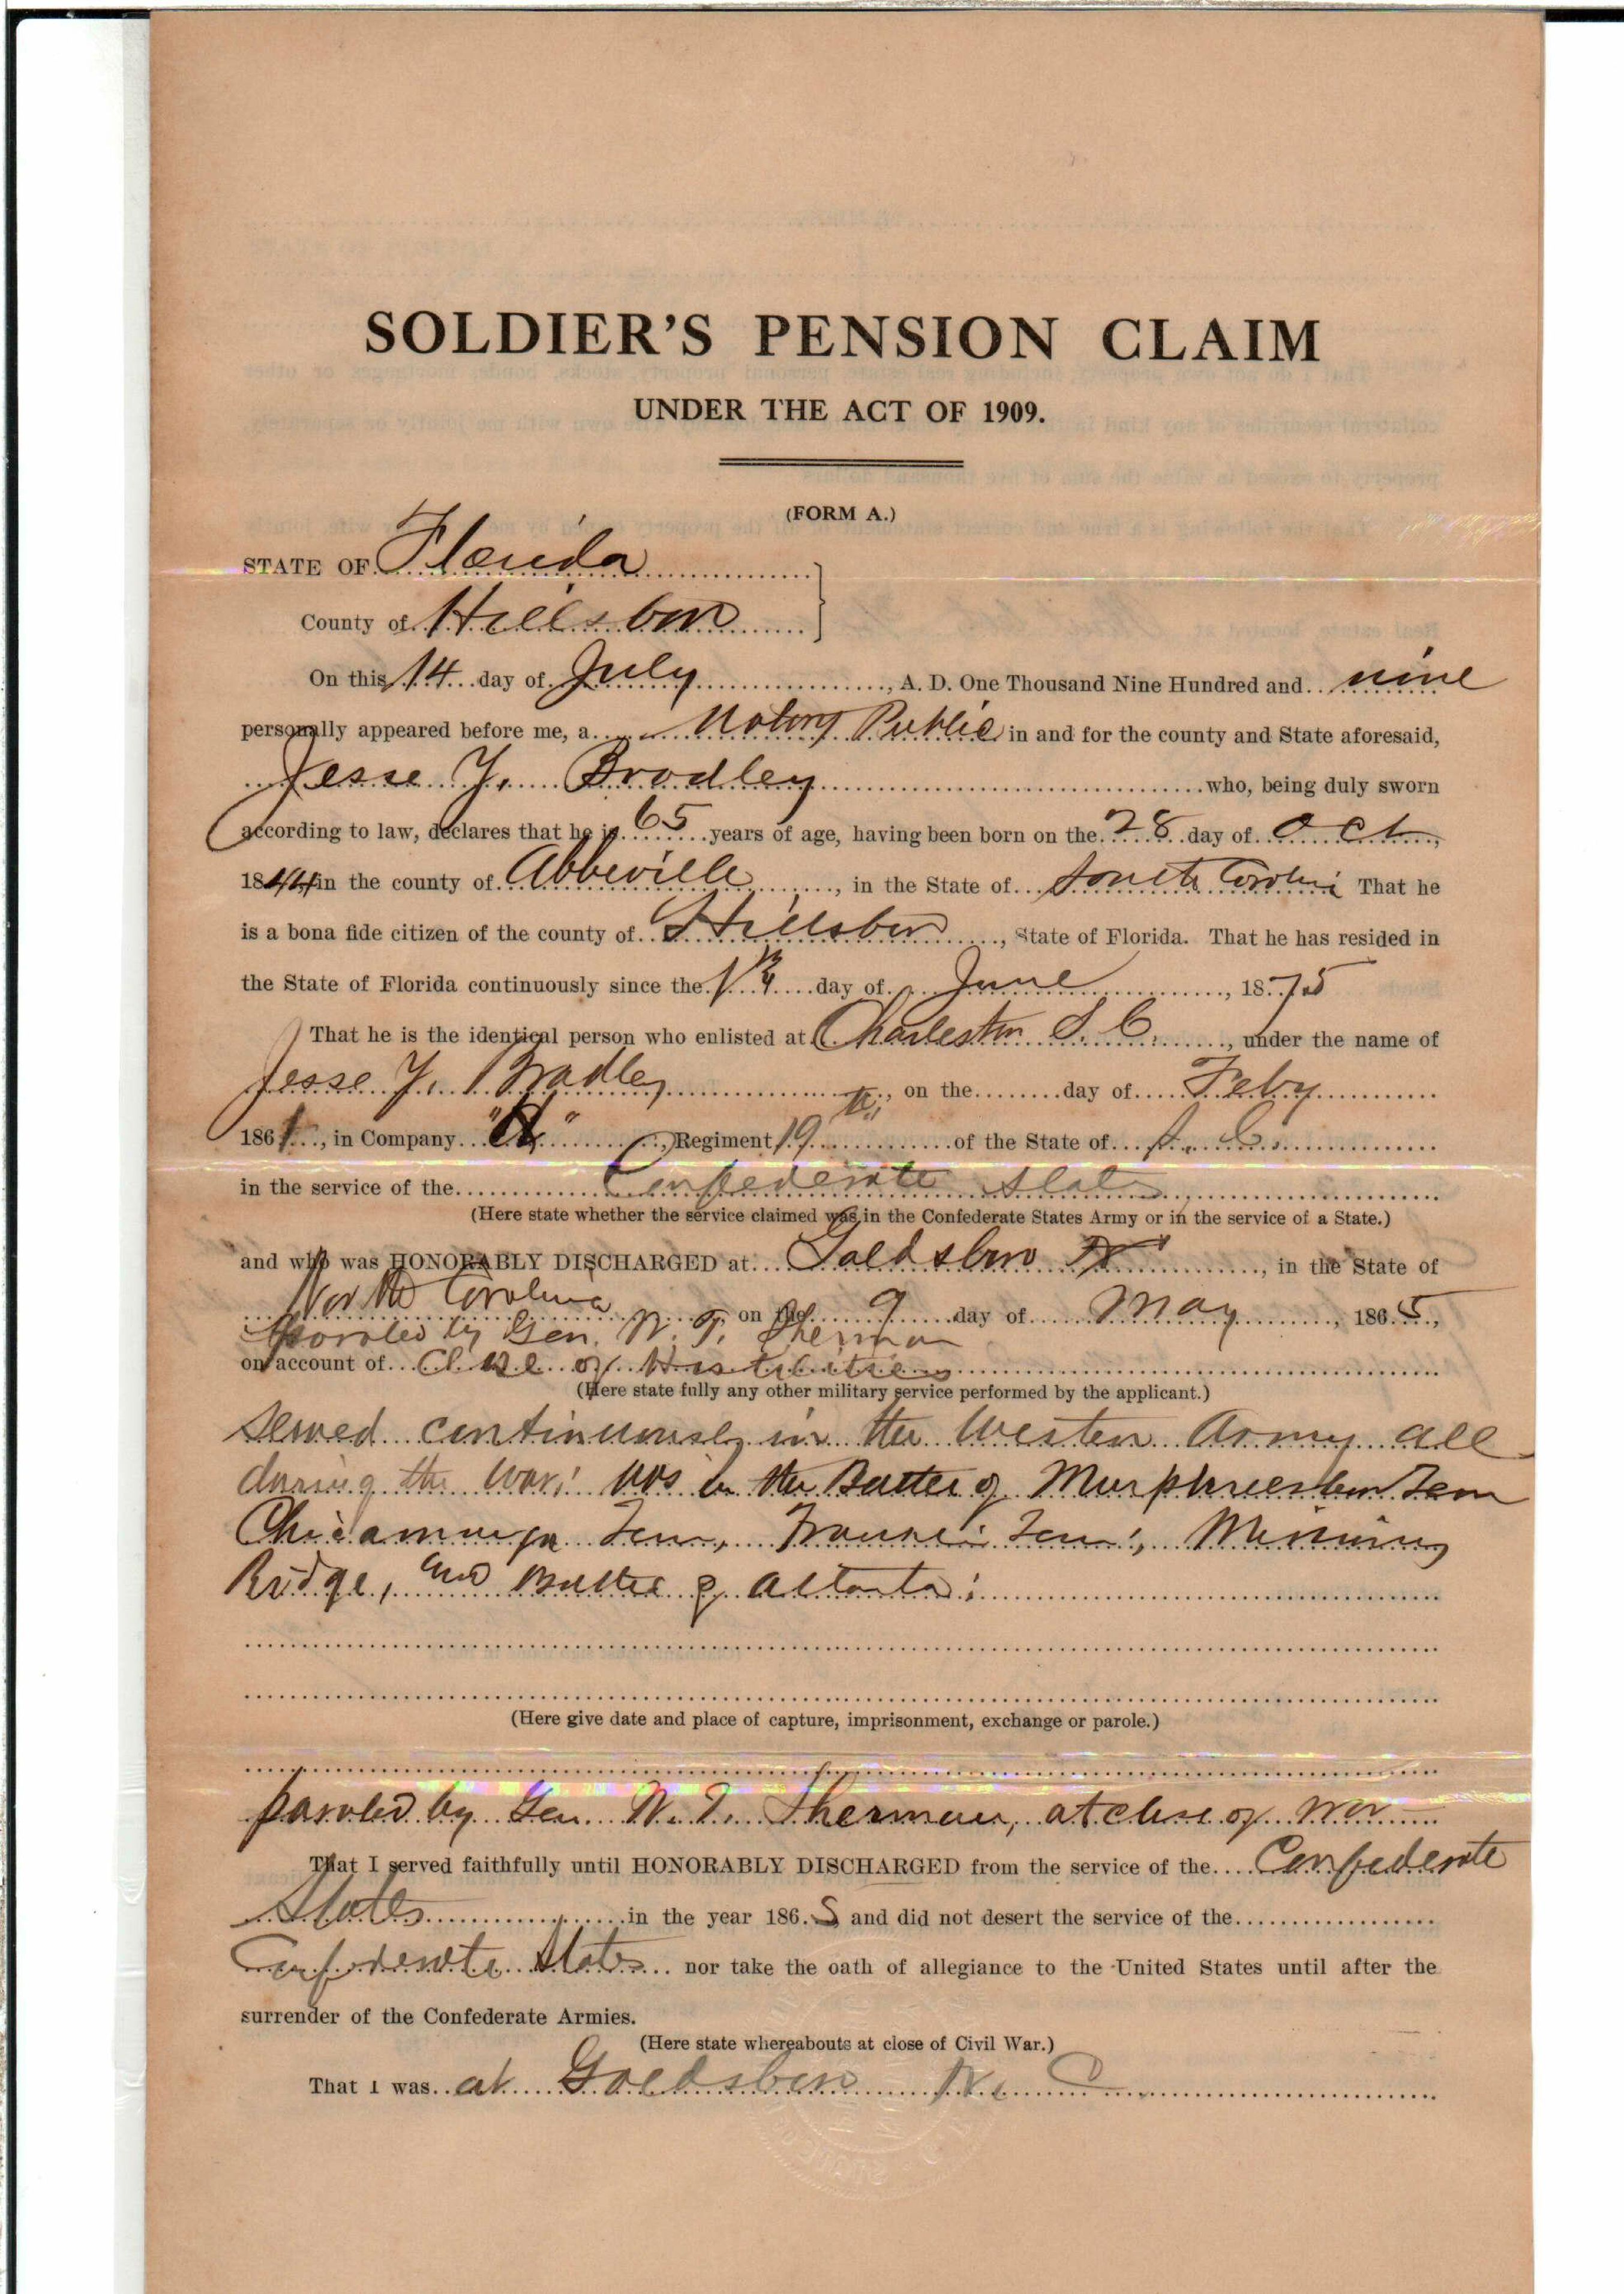 SOLDIER'S PENSION CLAIM
UNDER THE ACT OF 1909.
(FORM A.)
STATE OF Florida
County of Hillsboro
On this 14 day of July, A. D. One Thousand Nine Hundred and nine
personally appeared before me, a Notary Public in and for the county and State aforesaid,
Jesse Y. Bradley who, being duly sworn
according to law, declares that he is 65 years of age, having been born on the 28 day of Oct,
1844 in the county of Abbeville, in the State of South Carolina That he
is a bona fide citizen of the county of Hillsboro, State of Florida. That he has resided in
the State of Florida continuously since the day of June, 1875
That he is the identical person who enlisted at Charleston S. C., under the name of
Jesse Y. Bradley, on the day of Feby
1861, in Company, Regiment 19th of the State of S. C.
in the service of the Confederate States
(Here state whether the service claimed was in the Confederate States Army or in the service of a State.)
and who was HONORABLY DISCHARGED at Goldsboro, in the State of
North Carolina, on the 9 day of May, 1865,
Paroled by Gen. W. T. Sherman
on account of Close of Hostilities
(Here state fully any other military service performed by the applicant.)
Served continuously in the Western Army all
during the War; was in the Battle of Murphreesboro Tenn
Chicamauga Tenn, Tenn; Missionary
Ridge, and Battle of Atlanta;
(Here give date and place of capture, imprisonment, exchange or parole.)
paroled by Gen. W. T. Sherman, at close of war
That I served faithfully until HONORABLY DISCHARGED from the service of the Confederate
States in the year 1865 and did not desert the service of the
Confederate States nor take the oath of allegiance to the United States until after the
surrender of the Confederate Armies.
(Here state whereabouts at close of Civil War.)
That I was at Goldsboro N. C.